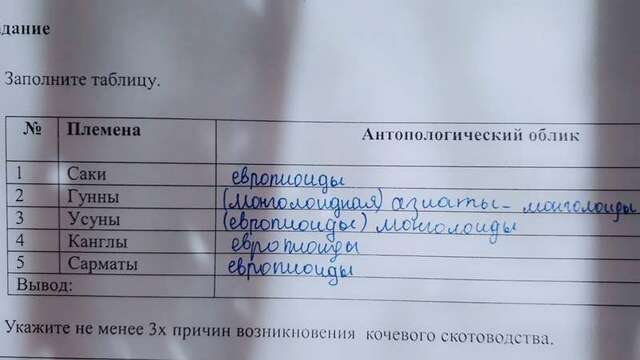 дание
Заполните таблицу.
№ Племена Антопологический облик
1 Саки европиоиды
2 Гунны (монголоидная) азиаты - монголоиды
3 Усуны (европиоиды) монголоиды
4 Канглы европиоиды
5 Сарматы европиоиды
Вывод:
Укажите не менее 3х причин возникновения кочевого скотоводства.